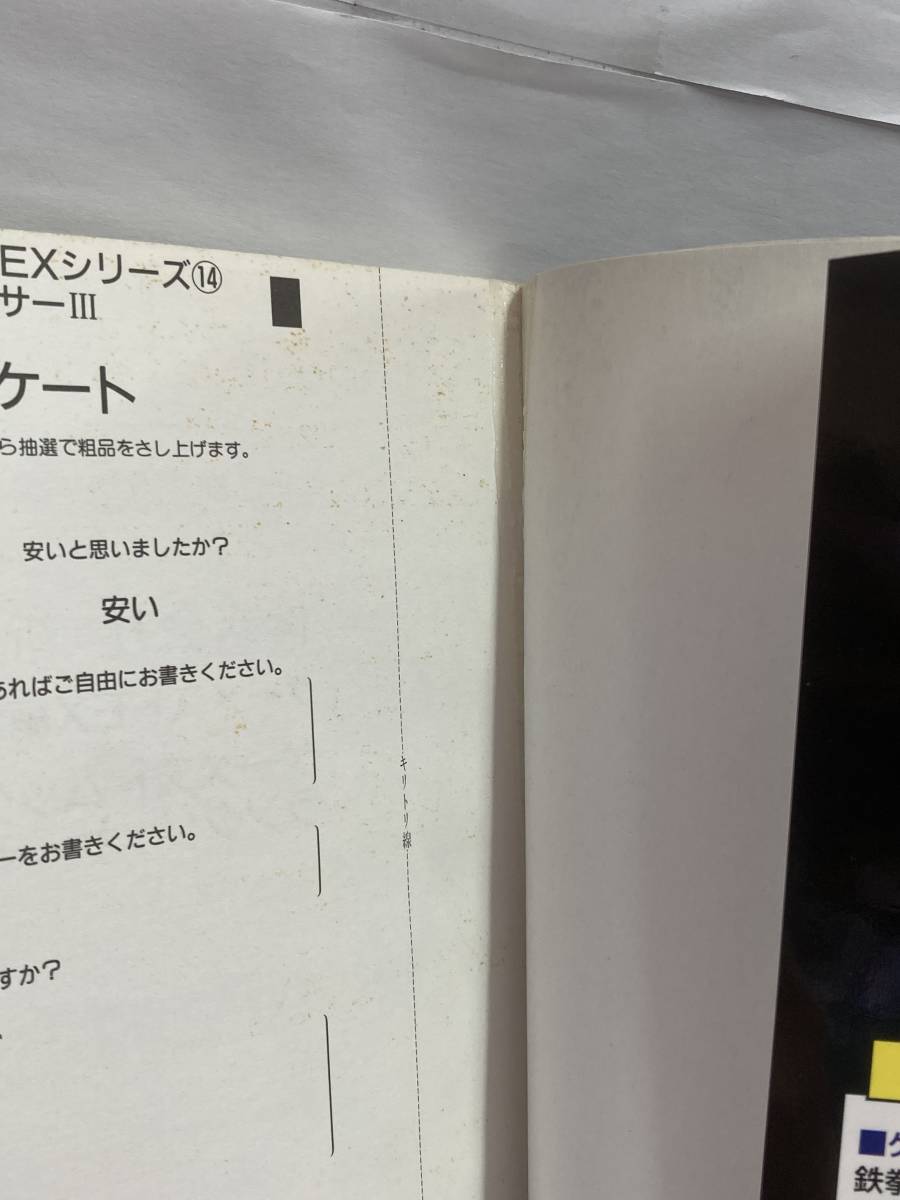 EXシリーズ⑭
サーIII
ケート
ら抽選で粗品をさし上げます。
安いと思いましたか？
安い
あればご自由にお書きください。
キリトリ線
ーをお書きください。
すか？
■ク
鉄拳